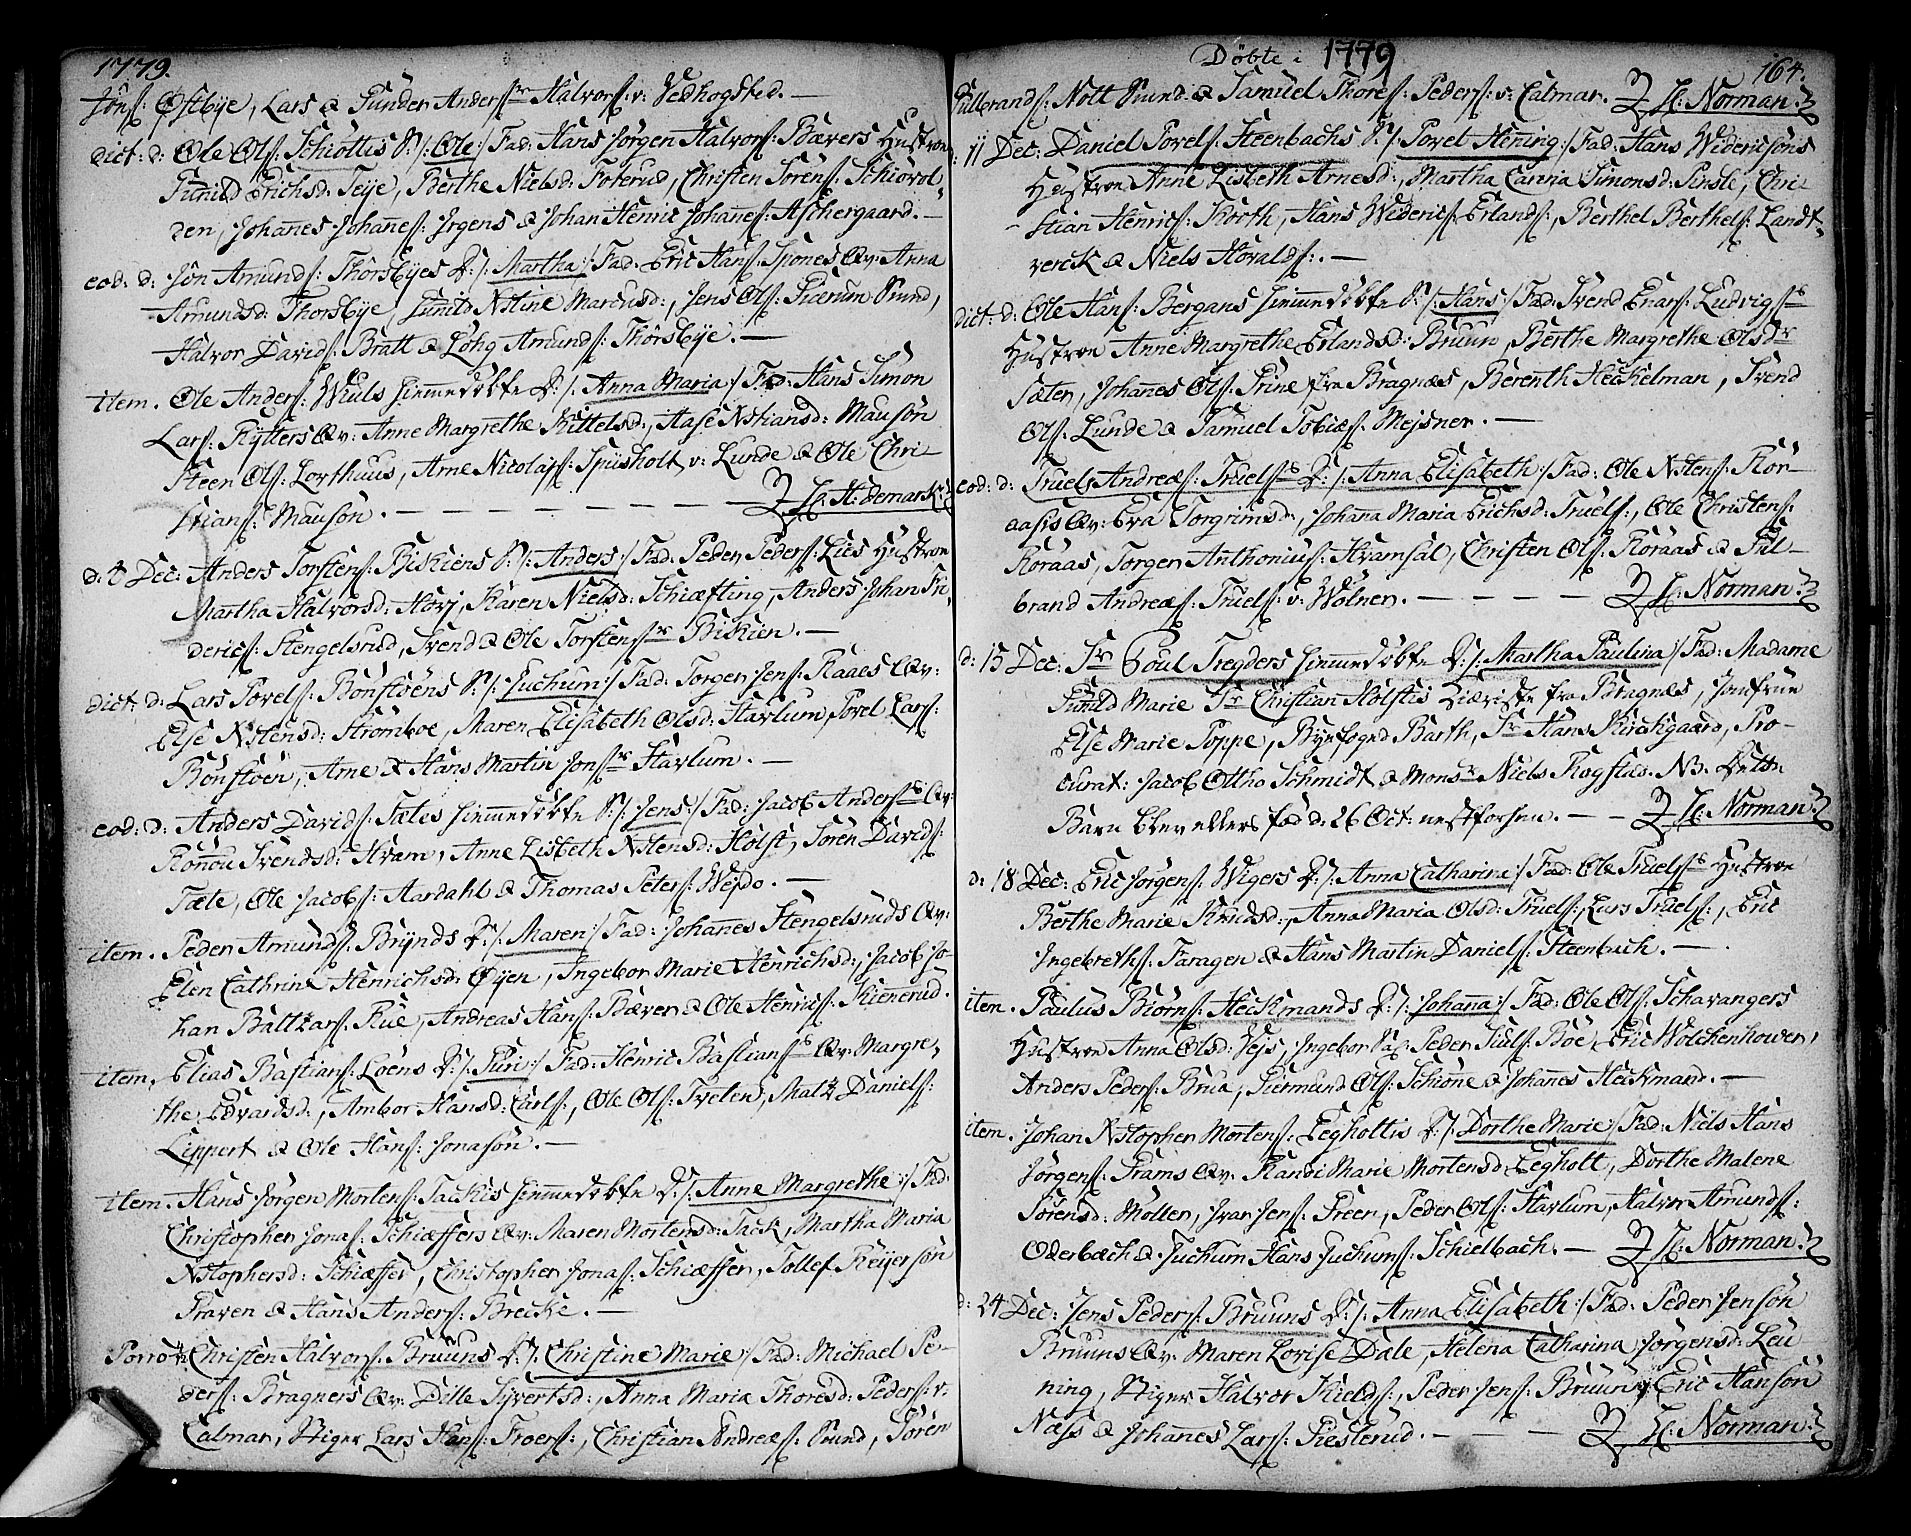 1779.
Jöns: Østbye, Lars & Gunder Anders:r Halvors: v: Vedhogsted. —
dict: d: Ole Ols: Schiöttis S: /: Ole :/ Fad: Hans Jørgen Halvors: Bævers Hustroe
Gunild Erichsd: Teije, Berthe Nielsd: Foterud, Christen Sörens: Schiörvol-
den, Johannes Johannes: Irgens & Johan Henric Johannes: Aschergaard. —
eod: d: Jön Amunds: Thorsbyes D: /: Martha :/ Fad: Eric Hans: Spones Qv: Anna
Amundsd: Thorsbye, Gunild Nstine Marcusd:, Jens Ols: Sicerum Grund,
Halvor Davids: Bratt & Löhg Amunds: Thörsbye. —
item. Ole Anders: Wiuls hiemmedøbte D: /: Anna Maria :/ Fad: Hans Simon
Lars: Rytters Qv: Anne Margrethe Kittelsd:, Aase Nstiansd: Mausön
Steen Ols: Lorthuus, Arne Nicolajs: Spiisholt v: Lunde & Ole Chri-
stians: Mausön. — — — — — — — H: Hdemark:
d: 8 Dec: Anders Torstens: Biskiens S: /: Anders :/ Fad: Peder Peders: Lies Hustroe
Martha Halvorsd: Horj, Karen Nielsd: Schiefting, Anders Johan Fri-
derics: Stengelsrud, Svend & Ole Torstens:r Biskien. —
dict: d: Lars Povels: Bonstöens S: /: Juchum :/ Fad: Torger Jens: Raaes Qv:
Else Nstensd: Strömboe, Maren Elisabeth Olsd: Havlum, Povel Lars:
Bönstöen, Arne & Hans Martin Jons:r Havlum. —
eod: d: Anders Davids: Tætes hiemmedøbte S: /: Jens :/ Fad: Jacob Anders:s Qv:
Rönnou Svendsd: Hvam, Anne Lisbeth Nstensd: Holst, Sören Davids:
Tæte, Ole Jacobs: Aardahl & Thomas Peters: Wejdo. —
item. Peder Amunds: Brynds D: /: Maren :/ Fad: Johannes Stengelsruds Qv:
Elen Cathrine Henrichsd: Øijen, Ingebor Marie Henrichsd:, Jacob Jo-
han Baltzars: Rue, Andreas Hans: Bæver & Ole Henrics: Kiennerud.
item, Elias Bastians: Loens D: /: Siri :/ Fad: Henric Bastians:s Qv: Margre-
the Edvardsd:, Ambor Hansd: Carls:, Ole Ols: Tvelen, Matz Daniels:
Lippert & Ole Hans: Jonasön. —
item. Hans Jörgen Mortens: Tackis hiemmedøbte D: /: Anne Margrethe :/ Fad:
Christopher Jonas: Schiæffers Qv: Maren Mortensd: Tack, Martha Maria
Nstophersd: Schiæffer, Christopher Jonas: Schiæffer, Tollef Reijersön
Praven & Hans Anders: Brecke. —
Porro: Christen Halvors: Bruuns D: /: Christine Marie :/ Fad: Michael Pe-
ders: Bragners Qv: Dille Syvertsd:, Anna Maria Thoresd: Peders: v:
Calmar, Stiger Lars Hans: Froers:, Christian Andreæs: Grund, Sören
Døbte i 1779
164.
Gulbrands: Nott Grund & Samuel Thores: Peders: v: Calmar. H: Norman:
d: 11 Dec: Daniel Povels: Steenbachs S: /: Povel Hening :/ Fad: Hans Widericsöns
Hustroe Anne Lisbeth Arnesd:, Martha Carina Simonsd: Pinsle, Chri-
stian Henrics: Korth, Hans Widerics: Erlands:, Berthel Berthels: Landt-
verck & Niels Hovalds:. —
dict: d: Ole Hans: Bergans hiemmedøbte S: /: Hans :/ Fad: Svend Enars: Ludvigs:s
Hustroe Anne Margrethe Erlandsd: Bruun, Berthe Margrethe Olsdr
Sæter, Johannes Ols: Prine fra Bragnæs, Berenth Heckelman, Svend
Ols: Lunde & Samuel Tobiæs: Mejsner. —
eod: d: Truels Andreæs: Truels:s D: /: Anna Elisabeth :/ Fad: Ole Nstens: Kor-
aasis Qv: Eva Torgrimsd:, Johana Maria Erichsd: Truels:, Ole Christens:
Koraas, Torger Anthonius: Hvamsal, Christen Ols: Koraas & Gul-
brand Andreæs: Truels: v: Wölner. — — — — H: Norman:
d: 15 Dec: Sr Poul Tregders hiemmedøbte D: /: Martha Paulina :/ Fad: Madame
Gunild Marie Sr Christian Holstis Kiæriste fra Bragnæs, Jomfrue
Else Marie Poppe, Byefogd Barth, Sr Hans Kirchgaard, Pro-
curat: Jacob Ottho Schmidt & Monsr Niels Rogstad. NB. Dette
Barn blev ellers fød d: 26 Oct: nestforhen. — — H: Norman:
d: 18 Dec: Eric Jørgens: Wigers D: /: Anna Catharina :/ Fad: Ole Truels:s Hustroe
Berthe Marie Knudsd:, Anna Maria Olsd: Truels:, Lars Truels:, Eric
Ingebreths: Faragen & Hans Martin Daniels: Steenbach. —
item. Paulus Biörns: Heckmands D: /: Johanna :/ Fad: Ole Ols: Schavangers
Hustroe Anna Olsd: Vejs, Ingebor Peder Siuls: Böe, Eric Wolchenhower,
Anders Peders: Brua, Giermund Ols: Schione & Johannes Heckmand. —
item. Johan Nstopher Mortens: Eegholtis D: /: Dorthe Marie :/ Fad: Niels Hans
Jörgens: Prams Qv: Randi Marie Mortensd: Eegholt, Dorthe Malene
Sörensd: Möller, Ivar Jens: Preen, Peder Ols: Havlum, Halvor Amunds:
Oderbæch & Juchum Hans Juchums: Schielbach. — H: Norman:
d: 24 Dec: Jens Peders: Bruuns D: /: Anna Elisabeth :/ Fad: Peder Jensön
Bruuns Qv: Maren Lovise Dale, Helena Catharina Jörgensd: Leu
ning, Stiger Halvor Kields:, Peder Jens: Bruun, Eric Hansön
Næss & Johannes Lars: Fieslerud. — — — H: Norman: